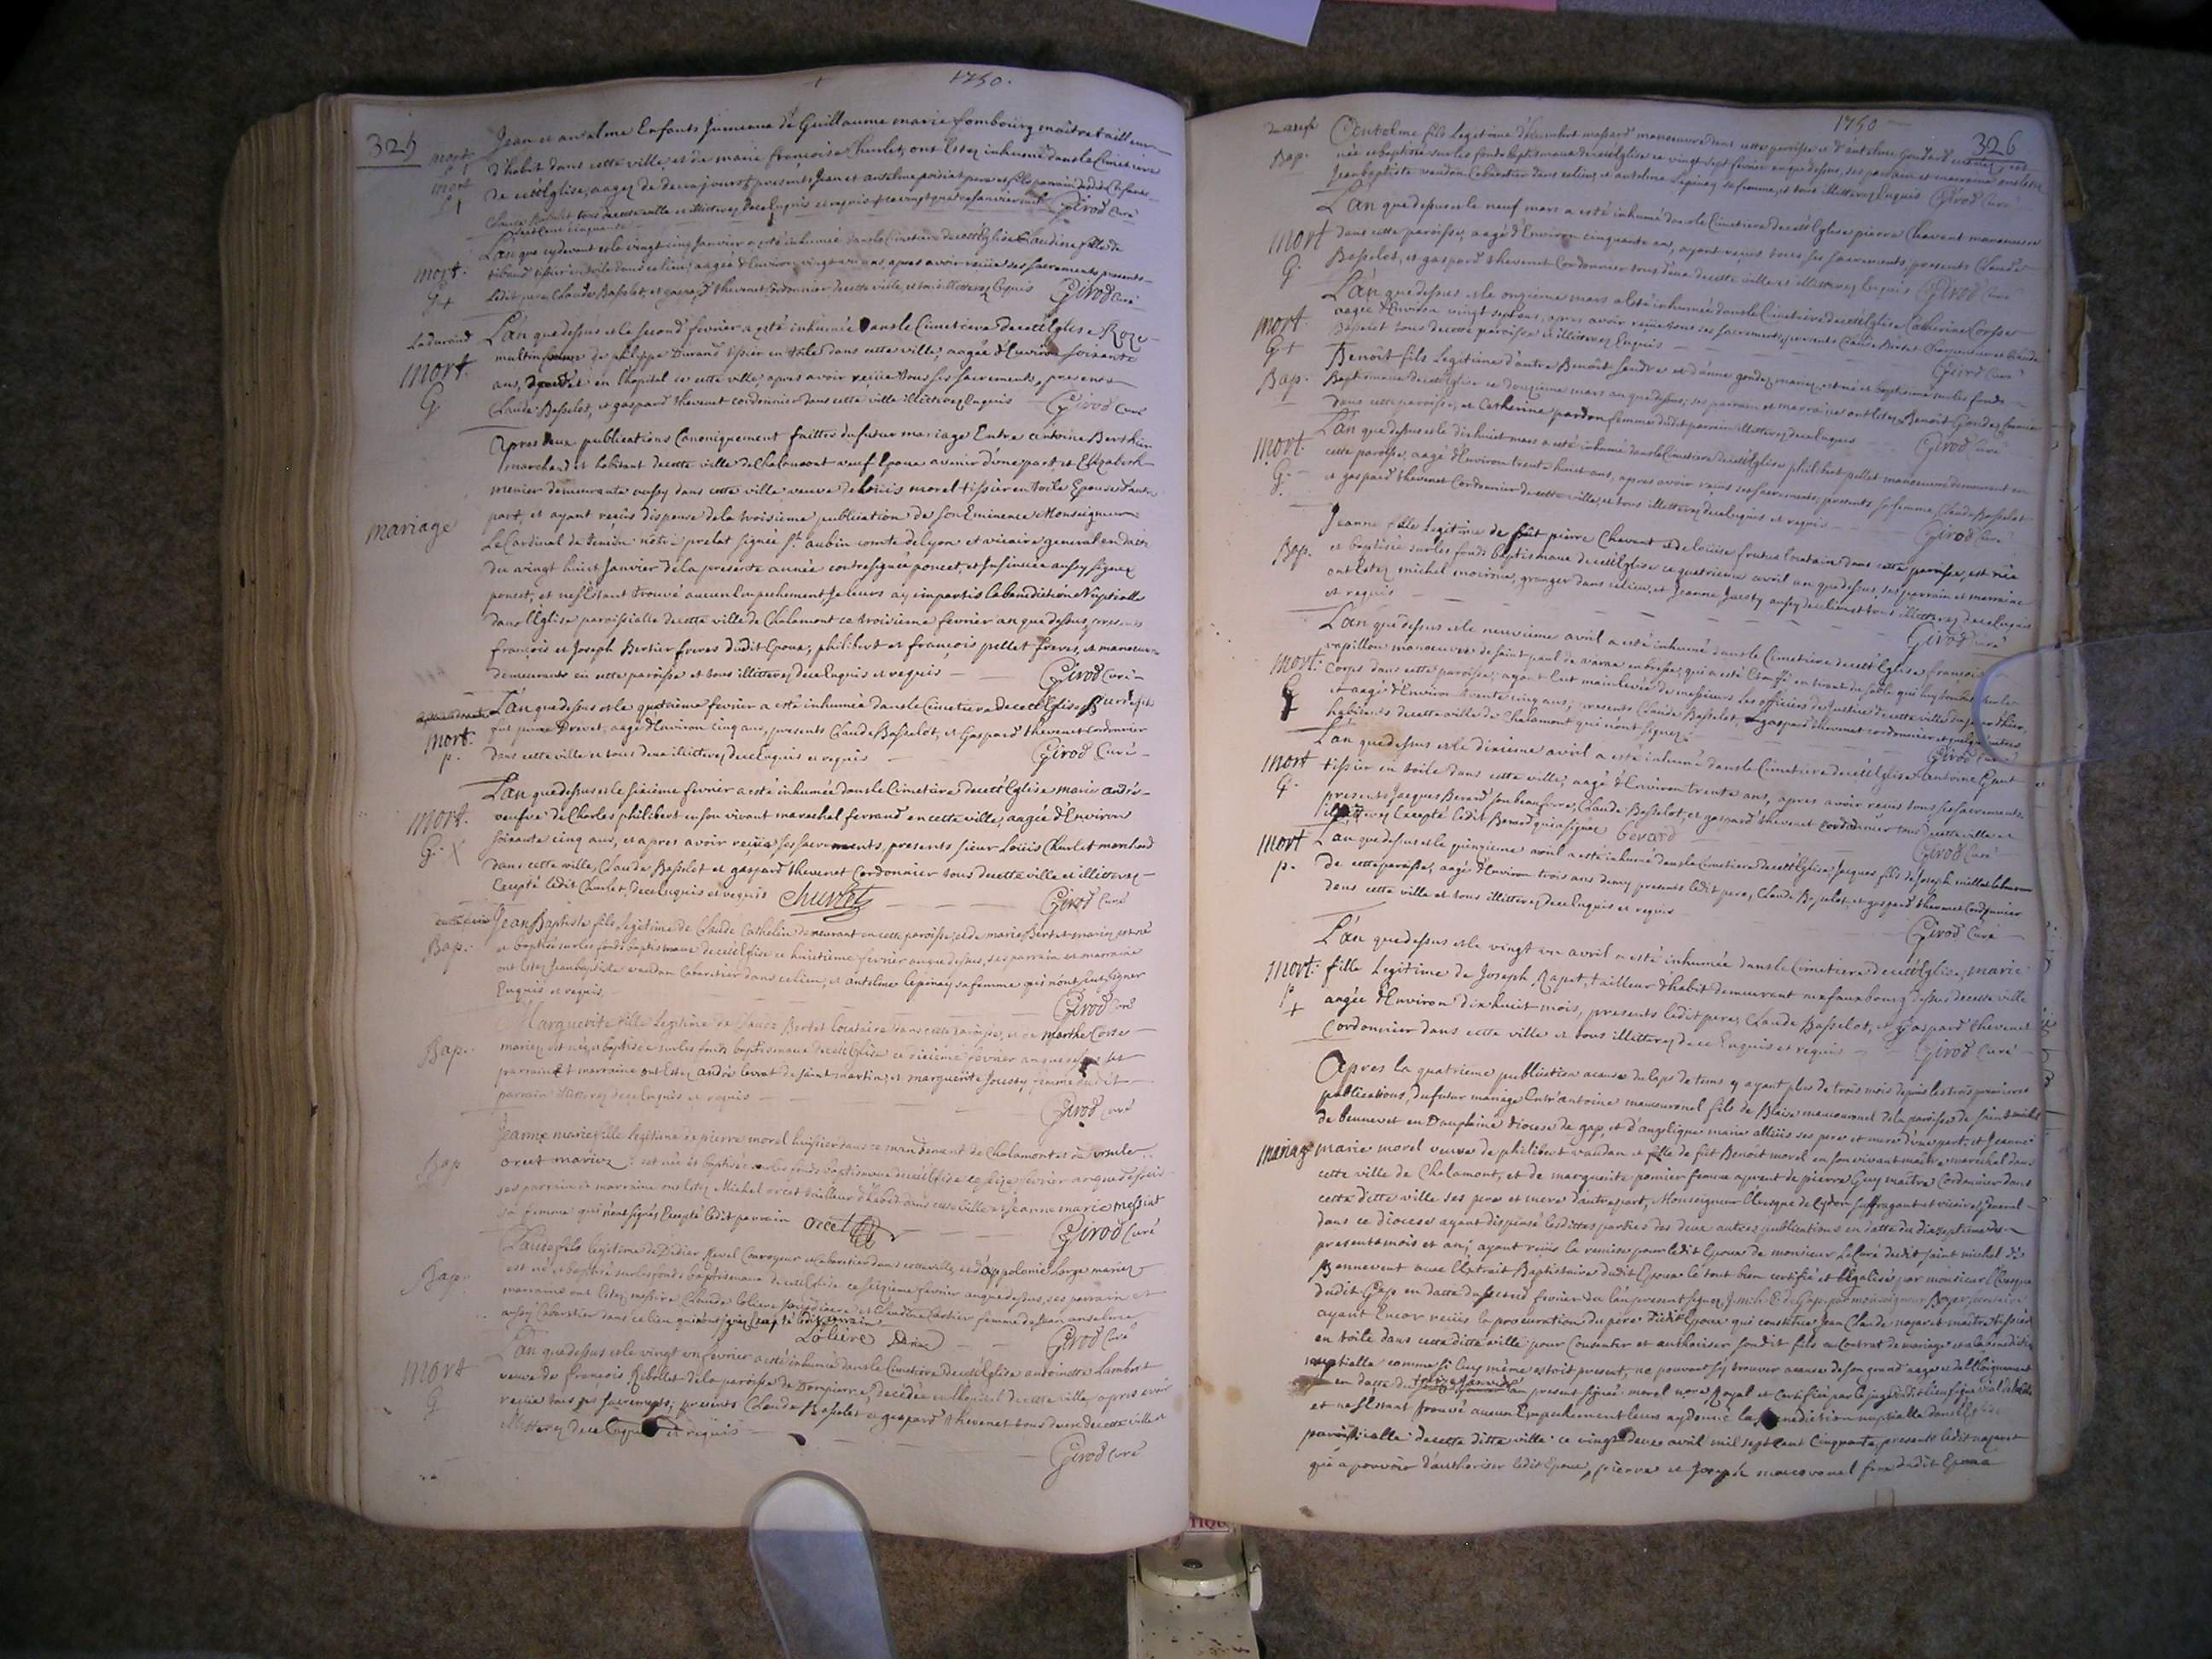 1750.
325
mort
Jean et anselme Enfants Jumeaux de Guillaume marie fombourg maître tailleur
d'habit dans cette ville et de marie françoise Churlet, ont Estez inhumé dans le Cimetiere
mort
de cette Eglise, aagez de deux jours, presents Jean et anselme
Claude Basselot tous de cette ville et illitterez de ce Enquis et requis ce vingt quatre janvier mil
Girod Curé
sept cent cinquante
L'an que cydevant et le vingt cinq janvier a esté inhumée dans le Cimetiere de cette Eglise Claudine fille de
mort.
tissier en toile dans ce lieu, aagée d'Environ vingt un ans, apres avoir reciie ses sacrements, presents
ledit pere, Claude Basselot, et gaspard thevenet Cordonnier de cette ville, et tous illitterez Enquis Girod Curé
La durand
L'an que dessus et le second fevrier a esté inhumée dans le Cimetiere de cette Eglise Roze
mort.
multin femme de philippe Durand tissier en toile dans cette ville, aagée d'Environ soixante
G
ans, decedée en l'hopital de cette ville, apres avoir reciie tous ses sacrements, presents
Claude Basselot, et gaspard thevenet cordonnier dans cette ville illitterez Enquis Girod Curé
Apres deux publications Canoniquement faittes du futur mariage Entre antoine Berthier
marchand et habitant de cette ville de Chalamont veuf Epoux avenir d'une part, et Elizabeth
menier demeurante aussy dans cette ville veuve de Loüis morel tissier en toile Epouse d'autre
mariage
part, et ayant reçüs dispense de la troisieme publication de son Eminence Monseigneur
Le Cardinal de tencin nôtre prelat signée St. aubin comte de Lyon et vicaire general en datte
du vingt huit Janvier de la presente année contresignée poncet, et Insinuée aussy signée
poncet, et ne s'Estant trouvé aucun Empechement, Je leurs ay impartis la benediction Nuptialle
dans l'Eglise paroissialle de cette ville de Chalamont ce troisieme fevrier an que dessus, presents
françois et Joseph Bertier freres dudit Epoux, philibert et françois pellet freres, et manoeuvres
demeurants en cette paroisse et tous illitterez de ce Enquis et requis Girod Curé
L'an que dessus et le quatrième fevrier a esté inhumée dans le Cimetiere de cette Eglise
mort.
fut pierre Drevet, aagé d'Environ cinq ans, presents Claude Basselot, et Gaspard thevenet cordonnier
p.
dans cette ville et tous deux illitterez de ce Enquis et requis Girod Curé
L'an que dessus et le sixième fevrier a esté inhumée dans le Cimetiere de cette Eglise marie andré
mort.
veufve de Charles philibert en son vivant marechal ferrand en cette ville, aagée d'Environ
G
soixante cinq ans, et apres avoir reciie ses sacrements, presents sieur Loüis Churlet marchand
dans cette ville, Claude Basselot et gaspard thevenet Cordonnier tous de cette ville et illitterez
Excepté ledit Churlet, de ce Enquis et requis Churlet Girod Curé
Jean Baptiste fils legitime de Claude Cathelin demeurant en cette paroisse, et de marie Bertet mariez, est né
Bap.
et baptisé sur les fonds baptismaux de cette Eglise ce huitieme fevrier an que dessus, ses parrain et marraine
ont Estez Jean baptiste vaudan Cabaretier dans ce lieu, et antelme lepinay sa femme qui n'ont sceut signer
Enquis et requis. Girod Curé
Marguerite fille legitime de Claude Bertet locataire dans cette paroisse, et de marthe Corses
Bap.
mariez est née et baptisée sur les fonds baptismaux de cette Eglise ce dixieme fevrier an que dessus ses
parrain et marraine ont Estez andré levrat de saint martin, et marguerite Joussy femme dudit
parrain illitterez de ce Enquis et requis Girod Curé
Jeanne marie fille legitime de pierre morel huissier dans ce mandement de Chalamont et de ursule
Bap
orcet mariez est née et baptisée sur les fonds baptismaux de cette Eglise ce fevrier an que dessus
ses parrain et marraine ont Estez Michel orcet tailleur d'habit dans cette ville et Jeanne marie messiat
sa femme qui n'ont signés Excepté ledit parrain orcet Girod Curé
Claude fils legitime de Didier Revel Conroyeur et Cabaretier dans cette ville, et d'appolonie Large mariez
Bap.
est né et baptisé sur les fonds baptismaux de cette Eglise ce seizieme fevrier an que dessus, ses parrain et
marraine ont Estez messire Claude Loliere et Claudine Cartier femme de Jean anselme
aussy Cabaretier dans ce lieu qui n'ont signés Excepté ledit parrain
Loliere Girod Curé
L'an que dessus et le vingt un fevrier a esté inhumée dans le Cimetiere de cette Eglise antoinette Lambert
mort
veuve de françois Rebollet de la paroisse de Dompierre, decedée en l'hopital de cette ville, apres avoir
G
reciie tous ses sacrements, presents Claude Basselot et gaspard thevenet tous deux de cette ville et
illitterez de ce Enquis et requis
Girod Curé
1750
326
Bap.
Antelme fils legitime d'humbert massard manoeuvre dans cette paroisse et d'antelme Goudard mariez est
née et baptisée sur les fonds baptismaux de cette Eglise ce vingt sept fevrier an que dessus, ses parrain et marraine ont Estez
Jean baptiste vaudan Cabaretier dans ce lieu, et antelme Lepinay sa femme, et tous illitterez Enquis Girod Curé
L'an que dessus et le neuf mars a esté inhumé dans le Cimetiere de cette Eglise pierre Chavent manoeuvre
mort
dans cette paroisse, aagé d'Environ cinquante ans, ayant reçus tous ses sacrements, presents Claude
G.
Basselot, et gaspard thevenet Cordonnier tous deux de cette ville et illitterez Enquis Girod Curé
L'an que dessus et le onzieme mars a esté inhumée dans le Cimetiere de cette Eglise Catherine Corses
mort
aagée d'Environ vingt sept ans, apres avoir reciie tous ses sacrements, presents Claude Bertet Charpentier et Claude
G +
Basselot tous de cette paroisse et illitterez Enquis Girod Curé
Benoît fils Legitime d'autre Benoît Sandre et d'anne gondez mariez, est né et baptisé sur les fonds
Bap.
Baptismaux de cette Eglise ce douzieme mars an que dessus, ses parrain et marraine ont Estez Benoît Gondez
dans cette paroisse, et Catherine pardon femme dudit parrain illitterez de ce Enquis Girod Curé
L'an que dessus et le dixhuit mars a esté inhumé dans le Cimetiere de cette Eglise philibert pellet manoeuvre demeurant en
mort.
cette paroisse, aagé d'Environ trente huit ans, apres avoir reçus ses sacrements, presents sa femme, Claude Basselot
G.
et gaspard thevenet Cordonnier de cette ville, et tous illitterez de ce Enquis et requis Girod Curé
Jeanne fille Legitime de fût pierre Chavent et de loüise frutus locataire dans cette paroisse, est née
Bap.
et baptisée sur les fonds baptismaux de cette Eglise ce quatrieme avril an que dessus, ses parrain et marraine
ont Estez michel moiroux, granger dans ce lieu, et Jeanne Jacety aussy de ce lieu et tous illitterez de ce Enquis
et requis Girod Curé
L'an que dessus et le neuvieme avril a esté inhumé dans le Cimetiere de cette Eglise françois
papillon manoeuvre de saint paul de varax en bresse, qui a esté Etouffé en tirant du sable qui luy tomba sur le
mort.
Corps dans cette paroisse, ayant Eut mainlevée de messieurs les officiers de Justice de cette ville du jour d'hier,
G
et aagé d'Environ trente cinq ans, presents Claude Basselot, gaspard thevenet cordonnier et quelques autres
habitants de cette ville de Chalamont qui n'ont signez. Girod Curé
L'an que dessus et le dixieme avril a esté inhumé dans le Cimetiere de cette Eglise antoine
mort
tissier en toile dans cette ville, aagé d'Environ trente ans, apres avoir recus tous ses sacrements
G.
presents Jacques Berard son beaufrere, Claude Basselot, et gaspard thevenet Cordonnier tous de cette ville et
illitterez Excepté ledit Berard qui a signez berard Girod Curé
mort
L'an que dessus et le quinzieme avril a esté inhumé dans le Cimetiere de cette Eglise Jacques fils de Joseph millet laboureur
p.
de cette paroisse, aagé d'Environ trois ans demy presents ledit pere, Claude Basselot, et gaspard thevenet Cordonnier
dans cette ville et tous illitterez de ce Enquis et requis Girod Curé
L'an que dessus et le vingt un avril a esté inhumée dans le Cimetiere de cette Eglise, marie
mort.
fille Legitime de Joseph Rapet, tailleur d'habit demeurant au fauxbourg dessus de cette ville
p
+
aagée d'Environ dixhuit mois, presents ledit pere, Claude Basselot, et Gaspard thevenet
Cordonnier dans cette ville et tous illitterez de ce Enquis et requis Girod Curé
Apres la quatrieme publication acause du laps de tems y ayant plus de trois mois depuis les trois premieres
publications, du futur mariage Entr'antoine maucouronel fils de Blaise maucouronel de la paroisse de saint michel
de beauvert en Dauphiné diocese de gap, et d'angelique marie alliüs ses pere et mere d'une part, et Jeanne
mariage
marie morel veuve de philibert vaudan et fille de fût Benoît morel en son vivant maître marechal dans
cette ville de Chalamont, et de marguerite pomier femme apresent de pierre Guy maître Cordonnier dans
cette ditte ville ses pere et mere d'autre part, Monseigneur l'Evesque de Cydon suffragant et vicaire General
dans ce diocese ayant dispensé lesdittes parties des deux autres publications en datte du dixseptieme du
present mois et an; ayant reçüs la remise pour ledit Epoux de monsieur Le Curé dudit saint michel de
Bennevent avec l'Extrait Baptistaire dudit Epoux le tout bien certifié et légalisé par monsieur l'Evesque
dudit Gap en datte du second fevrier de l'an present signez
ayant Encor reciis la procuration du pere dudit Epoux qui constitue Jean Claude nazaret maître tissier
en toile dans cette ditte ville pour Consentir et authoriser sondit fils au Contrat de mariage et a la benediction
nuptialle comme si luy même estoit present, ne pouvant s'y trouver acause de son grand aage et de l'Eloignement
en datte du treize janvier an present signée morel nore Royal et Certifié par le juge dudit lieu signé
et ne s'Estant trouvé aucun Empechement leurs ay donné la benediction nuptialle dans l'Eglise
paroissialle de cette ditte ville ce vingt deux avril mil sept cent Cinquante, presents ledit nazaret
qui a pouvoir d'authoriser ledit Epoux, pierre et Joseph maucouronel frere dudit Epoux